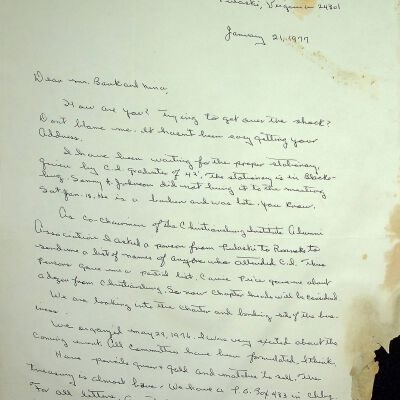 Pulaski, Virginia 24301
January 21, 1977
Dear Mr. Bank and
How are you? Trying to get over the shock?
Dont blame me. It hasnt been easy getting your
Address.
I have been waiting for the proper stationery,
given by C.I. graduates of 42'. The stationery is in Blacks-
burg. Sonny H. Johnson did not bring it to the meeting
Sat Jan. 15. He is a banker and was late. you know.
As co-chairmen of the Christiansburg Institute Alumni
Association I asked a person from Pulaski to Roanoke to
send me a list of names of anyone who attended C.I. Three
persons gave me a partial list. Price gave me about
a dozen from Christiansburg. So now Chapter heads will be
We are looking into the Charter and looking side of the bus-
iness.
We organized May 29, 1976. I was very excited about the
coming event. All committees have been formulated, I think.
Have pencils green & gold and matches to sell. The
treasury is almost bare. We have a P.O. Box 433 in
For all letters,